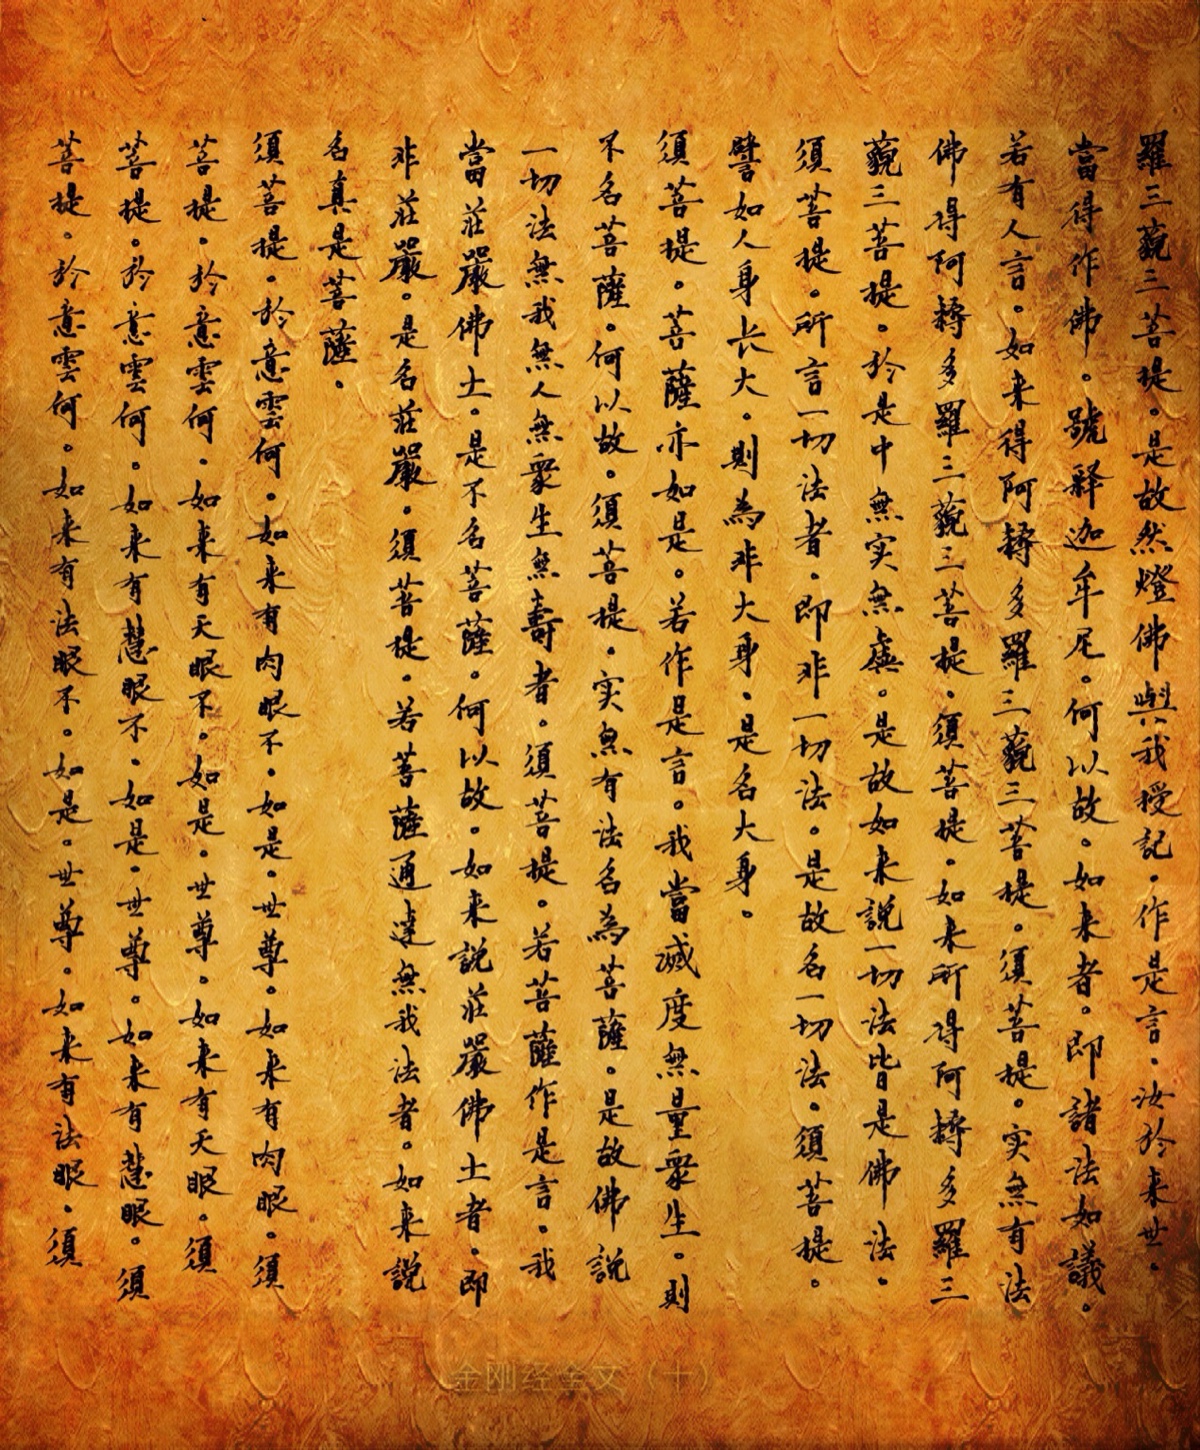 羅三藐三菩提。是故然燈佛與我授記。作是言。汝於来世。
當得作佛。號释迦牟尼。何以故。如来者。即諸法如議。
若有人言。如来得阿耨多羅三藐三菩提。須菩提。实無有法
佛得阿耨多羅三藐三菩提。須菩提。如来所得阿耨多羅三
藐三菩提。於是中無实無虛。是故如来說一切法皆是佛法。
須菩提。所言一切法者。即非一切法。是故名一切法。須菩提。
譬如人身长大。則為非大身。是名大身。
須菩提。菩薩亦如是。若作是言。我當滅度無量衆生。則
不名菩薩。何以故。須菩提。实無有法名為菩薩。是故佛說
一切法無我無人無衆生無壽者。須菩提。若菩薩作是言。我
當莊嚴佛土。是不名菩薩。何以故。如来說莊嚴佛土者。即
非莊嚴。是名莊嚴。須菩提。若菩薩通達無我法者。如来說
名真是菩薩。
須菩提。於意雲何。如来有肉眼不。如是。世尊。如来有肉眼。須
菩提。於意雲何。如来有天眼不。如是。世尊。如来有天眼。須
菩提。於意雲何。如来有慧眼不。如是。世尊。如来有慧眼。須
菩提。於意雲何。如来有法眼不。如是。世尊。如来有法眼。須
金刚经全文（十）